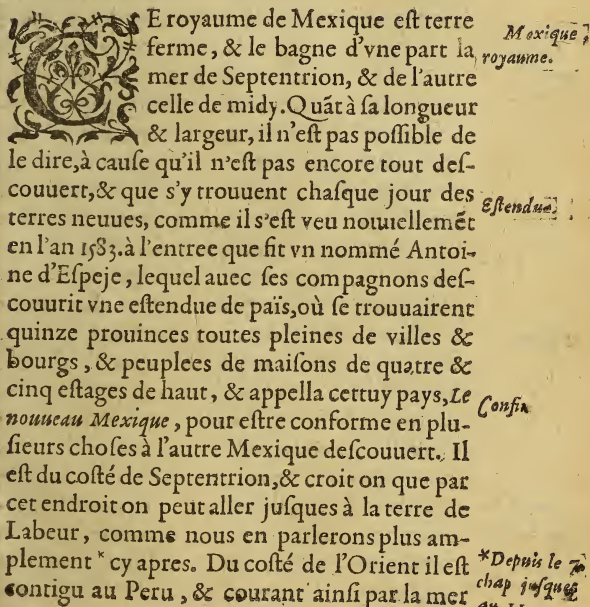 CE royaume de Mexique eſt terre
ferme, & le bagne d'vne part la
mer de Septentrion, & de l'autre
celle de midy. Quãt à ſa longueur
& largeur, il n'eſt pas poſſible de
le dire, à cauſe qu'il n'eſt pas encore tout deſ-
couuert, & que s'y trouuent chaſque jour des
terres neuues, comme il s'eſt veu nouuellemẽt
en l'an 1583. à l'entree que fit vn nommé Antoi-
ne d'Eſpeje, lequel auec ſes compagnons deſ-
couurit vne eſtendue de païs, où ſe trouuairent
quinze prouinces toutes pleines de villes &
bourgs, & peuplees de maiſons de quatre &
cinq eſtages de haut, & appella cettuy pays, Le
nouueau Mexique, pour eſtre conforme en plu-
ſieurs choſes à l'autre Mexique deſcouuert. Il
eſt du coſté de Septentrion, & croit on que par
cet endroit on peut aller juſques à la terre de
Labeur, comme nous en parlerons plus am-
plement * cy apres. Du coſté de l'Orient il eſt
contigu au Peru, & courant ainſi par la mer
Mexique
royaume.
Eſtendue.
Confin
*Depuis le 7
chap juſques